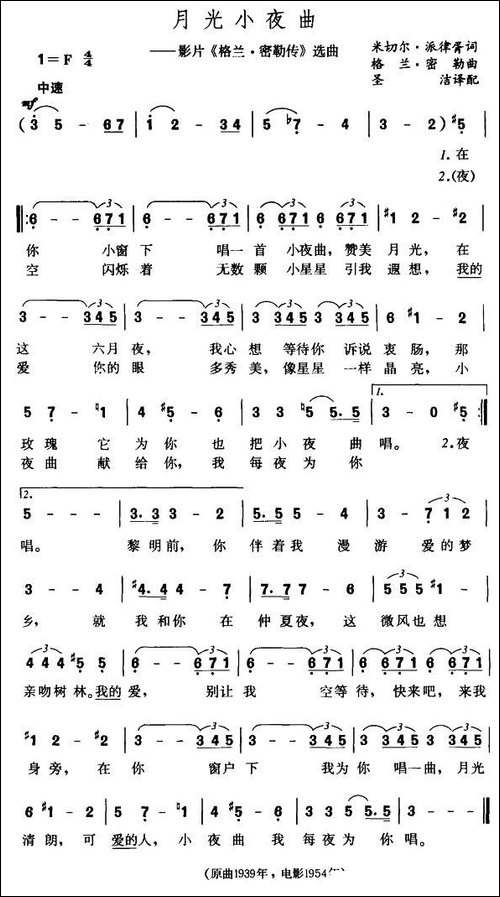 月光小夜曲
——影片《格兰·密勒传》选曲
米切尔·派律胥词
格兰·密勒曲
圣洁译配
1=F 4/4
中速
mf
(3 5 - 67 | 1 2 - 34 | 5 ♭7 - 4 | 3 - 2) ♯5
1.在
2.(夜)
6 - - 671 | 6 - - 671 | 6 671 6 671 | ♯1 2 - ♯2
你 小窗下 唱一首 小夜曲，赞美 月光，在
空 闪烁着 无数颗 小星星 引我 遐想，我的
3 - - 345 | 3 - - 345 | 3 345 3 345 | 6 ♯1 - 2
这 六月夜， 我心想 等待你 诉说 衷肠，那
爱 你的眼 多秀美，像星星 一样 晶亮，小
5 7 - ♮1 | 4 ♯5 - 6 | 3 3 ♮5 5.5 | 3 - 0 ♯5
1.
玫瑰 它为你 也把小夜曲唱。 2.夜
夜曲 献给你，我每夜为你
2.
5 - - - | 3.3 3 - 2 | 5.5 5 - 4 | 3 - 712
唱。 黎明前，你 伴着我 漫游 爱的梦
3 - - 4 | ♯4.4 4 - 7 | 7.7 7 - 6 | 555 ♯1 -
乡， 就 我和你 在 仲夏夜，这 微风也想
444 ♯5 5 | 6 - - 671 | 6 - - 671 | 6 671 6 671
亲吻树林。我的 爱， 别让我 空等待，快来吧，来我
♯1 2 - ♯2 | 3 - - 345 | 3 - - 345 | 3 345 3 345
身旁，在 你 窗户下 我为你 唱一曲，月光
6 ♯1 - 2 | 5 7 - ♮1 | 4 ♯5 - 6 | 3 3 5 5.5 | 3 - - -
清朗，可 爱的人，小夜曲 我每夜为你唱。
(原曲1939年，电影1954